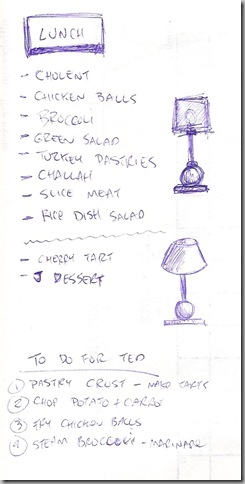 LUNCH
- CHOLENT
- CHICKEN BALLS
- BROCCOLI
- GREEN SALAD
- TURKEY PASTRIES
- CHALLAH
- SLICE MEAT
- DISH SALAD
- CHERRY TART
- J DESSERT
TO DO FOR TED
1 PASTRY CRUST - TARTS
2 CHOP POTATO +
3 FRY CHICKEN BALLS
4 STEAM BROCCOLI - MARINADE